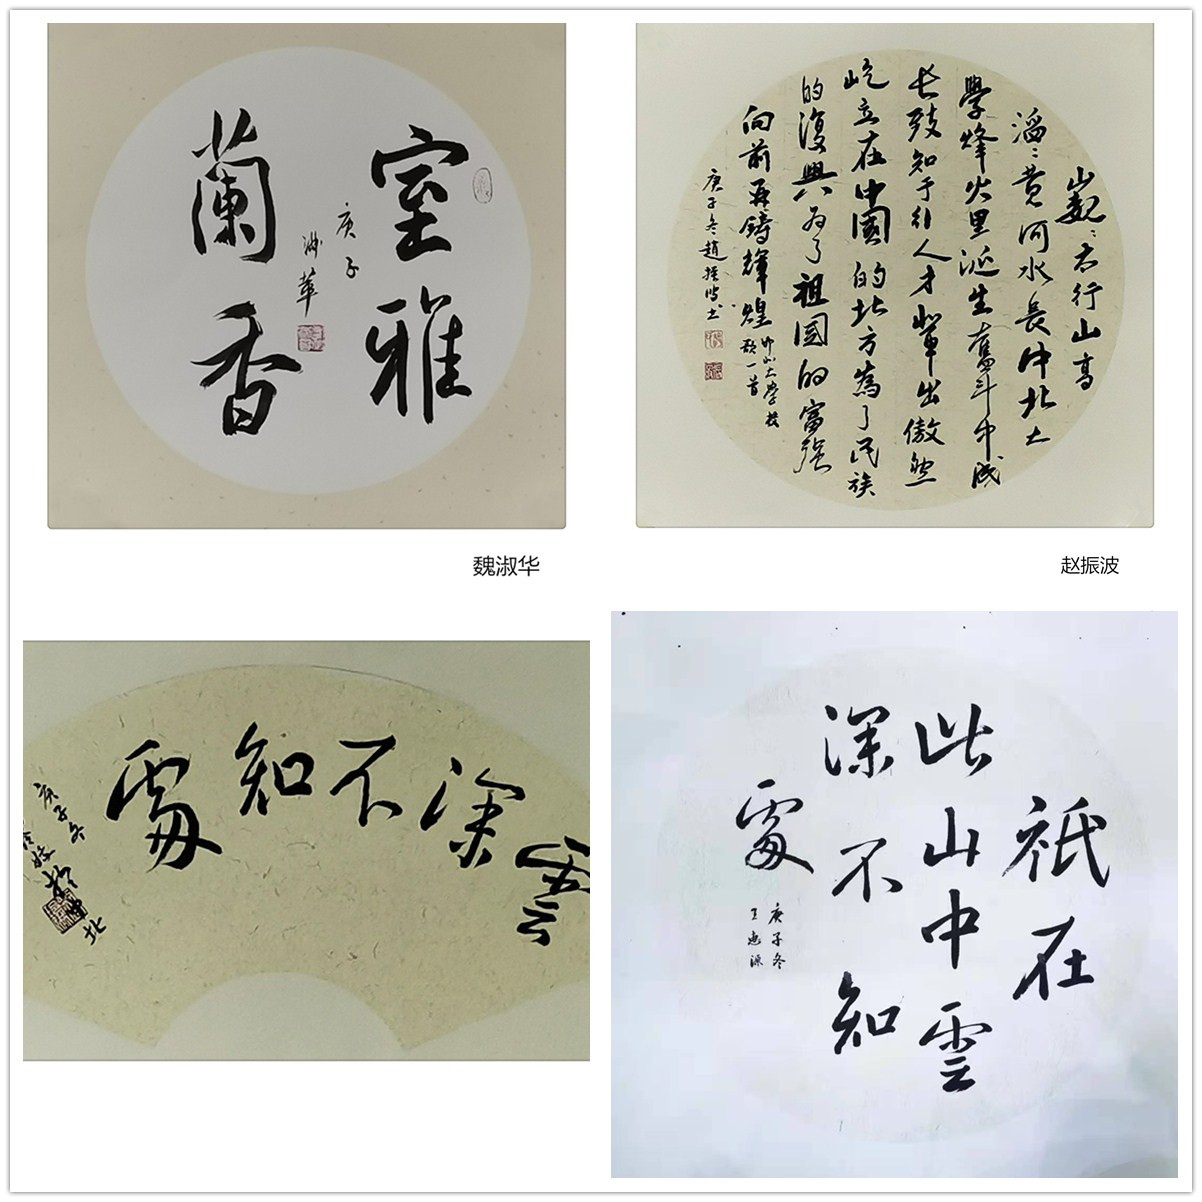 室雅
蘭香
庚子
淑華
魏淑华
巍〻太行山高
滔〻黄河水長中北大
學烽火里诞生奮斗中成
长致知于行人才辈出傲然
屹立在中國的北方為了民族
的復興为了祖国的富强
向前再鑄輝煌
中北大學校
歌一首
庚子冬趙振波书
赵振波
雲深不知處
庚子冬
祇在
此山中雲
深不知
處
庚子冬
王忠源